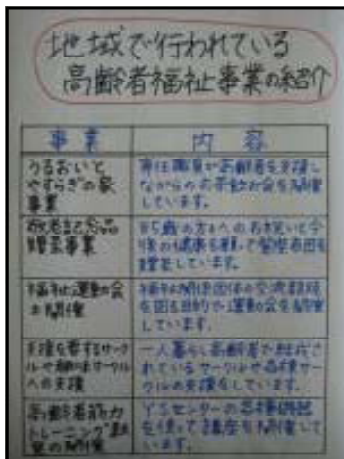 地域で行われている
高齢者福祉事業の紹介
事業
内容
うるおいと
やすらぎの家
事業
専任職員が高齢者を支援し
ながらのお茶飲み会を開催
しています。
敬老記念品
贈呈事業
85歳の方々へのお祝いと今
後の健康を願って
贈呈しています。
福祉運動会
の開催
福祉関係団体の交流親睦
を図る目的で運動会を開催
しています。
支援を要するサーク
への支援
一人暮らし高齢者で結成され
ているサークルや各種サー
クルの支援をしています。
高齢者筋力
トレーニング教
室の開催
YSセンターの各種機器
を使って講座を開催して
います。